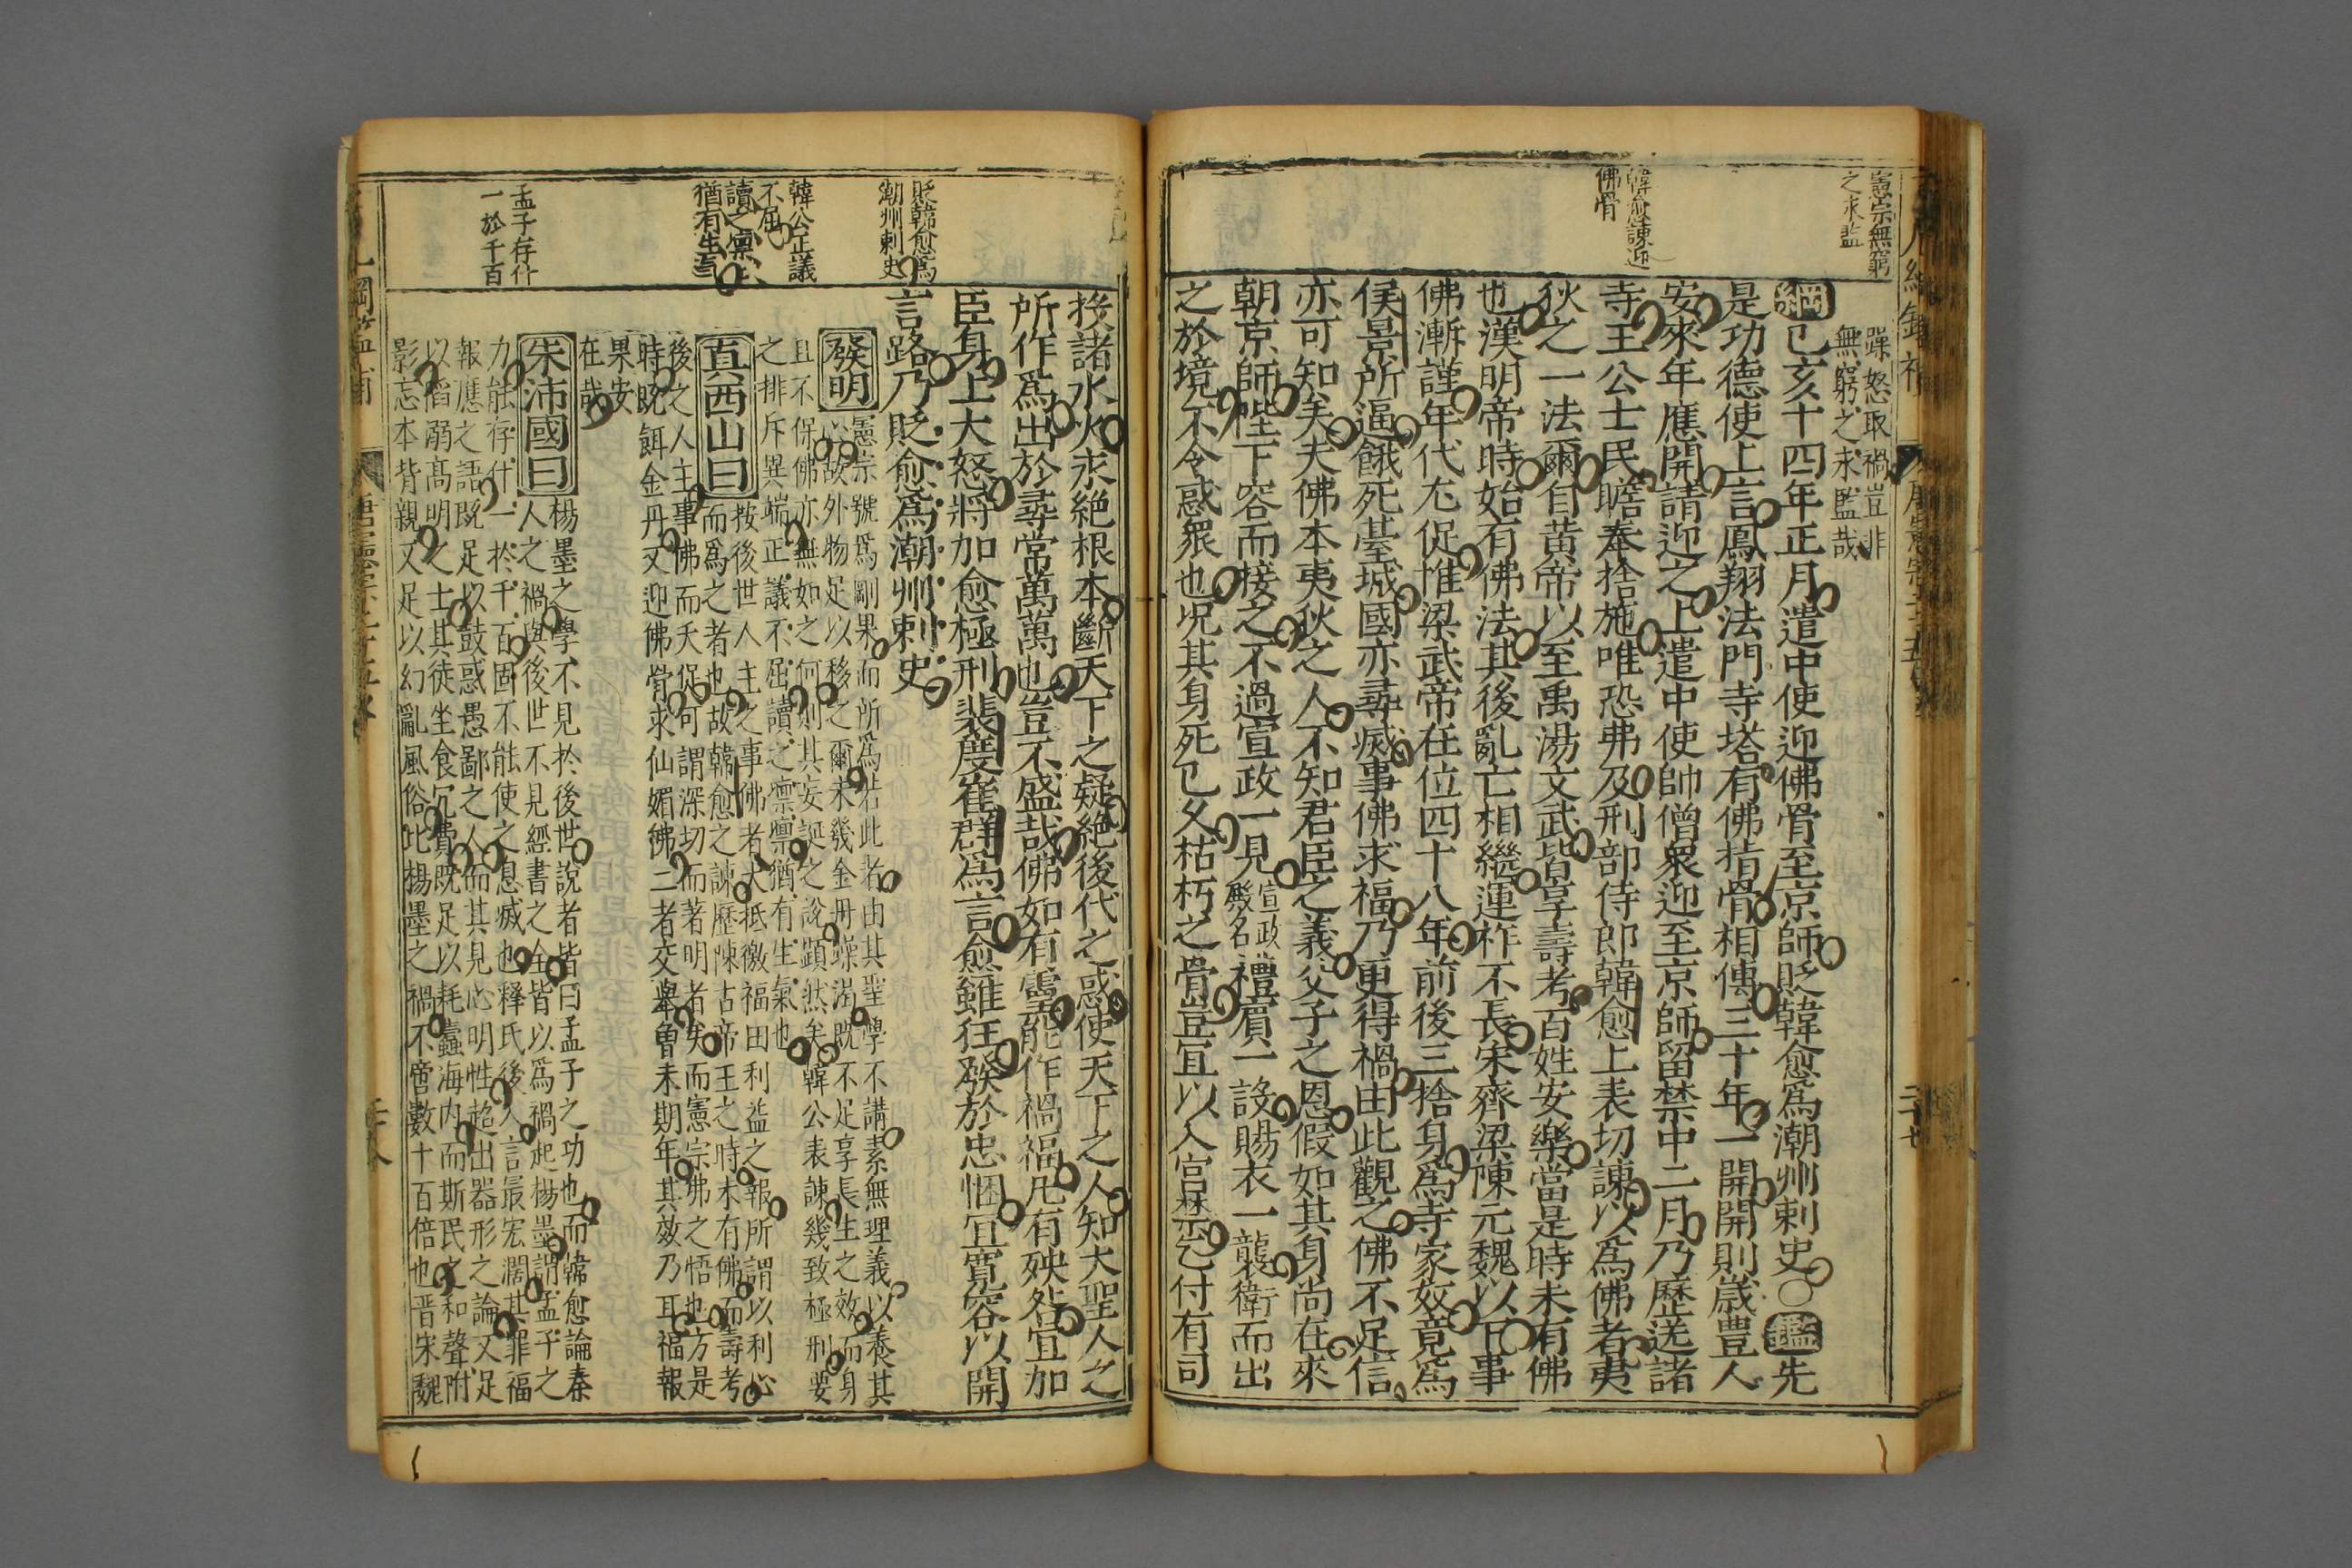 憲宗無窮
之永監
躁怒取禍豈非
無窮之永監哉
綱己亥十四年正月遣中使迎佛骨至京師貶韓愈爲潮州刺史○鑑先
是功德使上言鳳翔法門寺塔有佛指骨相傳三十年一開開則歳豊人
安來年應開請迎之上遣中使帥僧衆迎至京師留禁中二月乃歷送諸
韓愈諫迎
佛骨
寺王公士民瞻奉捨施唯恐弗及刑部侍郎韓愈上表切諫以爲佛者夷
狄之一法爾自黃帝以至禹湯文武皆享壽考百姓安樂當是時未有佛
也漢明帝時始有佛法其後亂亡相繼運祚不長宋齊梁陳元魏以下事
佛漸謹年代尤促惟梁武帝在位四十八年前後三捨身爲寺家奴竟爲
侯景所逼餓死臺城國亦尋滅事佛求福乃更得禍由此觀之佛不足信
亦可知矣夫佛本夷狄之人不知君臣之義父子之恩假如其身尚在來
朝京師陛下容而接之不過宣政一見宣政殿名禮賓一設賜衣一襲衛而出
之於境不令惑衆也况其身死已久枯朽之骨豈宜以入宮禁乞付有司
投諸水火永絕根本斷天下之疑絕後代之惑使天下之人知大聖人之
所作爲出於尋常萬萬也豈不盛哉佛如有靈能作禍福凡有殃咎宜加
臣身上大怒將加愈極刑裴度崔群爲言愈雖狂發於忠悃宜寬容以開
貶韓愈爲
潮州刺史
言路乃貶愈爲潮州刺史
發明憲宗號爲剛果而所爲若此者由其聖學不講素無理義以養其
心故外物足以移之爾未幾金丹躁渴既不足享長生之效而身
且不保佛亦無如之何則其妄誕之說顯然矣韓公表諫幾致極刑要
韓公正議
不屈
讀之凛凛
猶有生氣
之排斥異端正議不屈讀之凛凛猶有生氣也
真西山曰按後世人主之事佛者大抵徼福田利益之報所謂以利心
而爲之者也故韓愈之諫歷陳古帝王之時未有佛而壽考
後之人主事佛而夭促可謂深切而著明者矣而憲宗佛之悟也方是
時既餌金丹又迎佛骨求仙媚佛二者交舉曾未期年其效乃耳福報
果安
在哉
孟子存什
一於千百
朱沛國曰楊墨之學不見於後世說者皆曰孟子之功也而韓愈論秦
人之禍與後世不見經書之全皆以爲禍起楊墨謂孟子之
力能存什一於千百固不能使之息滅也釋氏後入言最宏濶其罪福
報應之語既足以鼓惑愚鄙之人而其見心明性超出器形之論又足
以滔溺高明之士其徒坐食冗費既足以耗蠹海内而斯民之和聲附
影忘本背親又足以幻亂風俗比楊墨之禍不啻數十百倍也晋宋魏